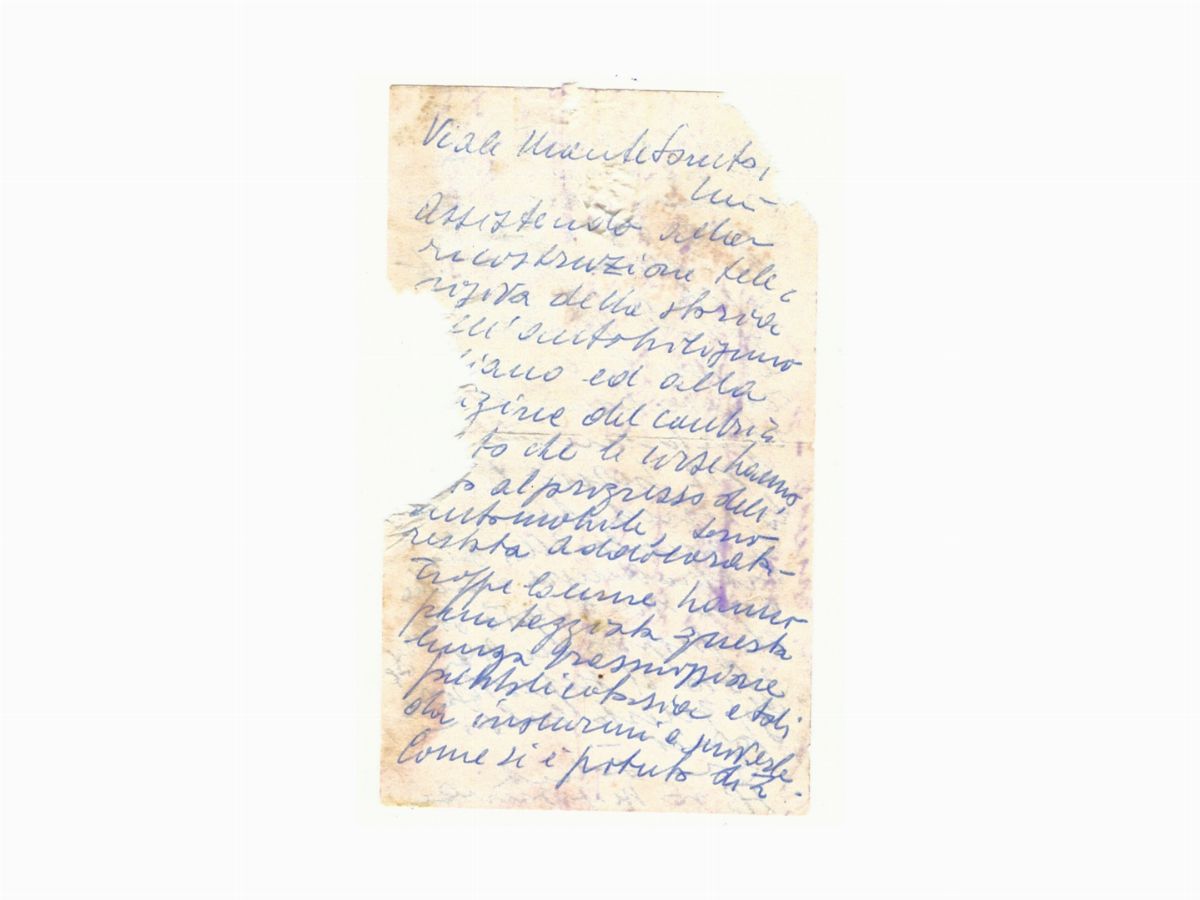 Viale Monte Santo,
Mi
Assistendo alla
ricostruzione tele-
visiva della storia
ell'automobilismo
liano ed alla
azione del contri
to che le corse hanno
to al progresso dell'
automobile, sono
restata addolorata-
Troppe lacune hanno
punteggiata questa
lunga trasmissione
pubblicitaria e tali
da indurmi a protesta-
Come si è potuto di2